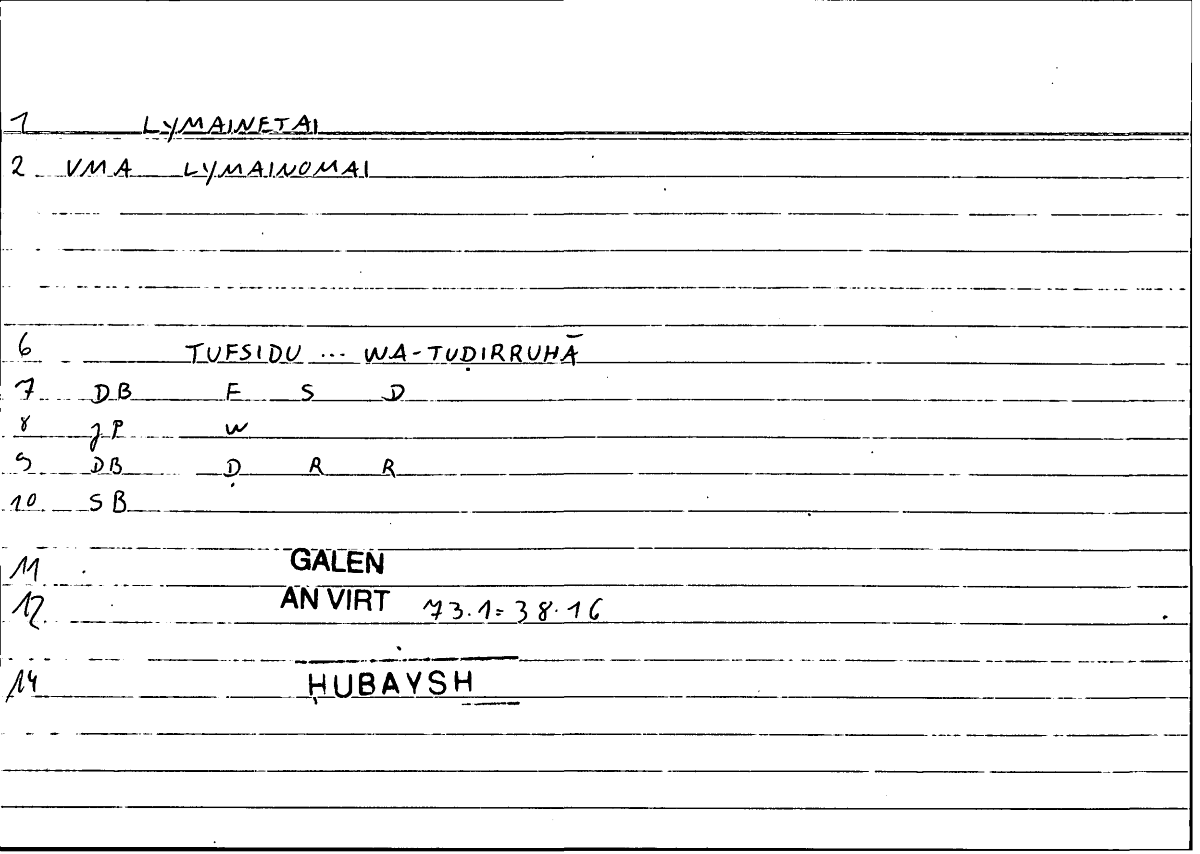 1 LYMAINETAI
2 VMA LYMAINOMAI
6 TUFSIDU ... WA-TUḌIRRUHĀ
7 DB F S D
8 JP W
9 DB Ḍ R R
10 SB
11 GALEN
12 AN VIRT 73.1=38.16
14 ḤUBAYSH